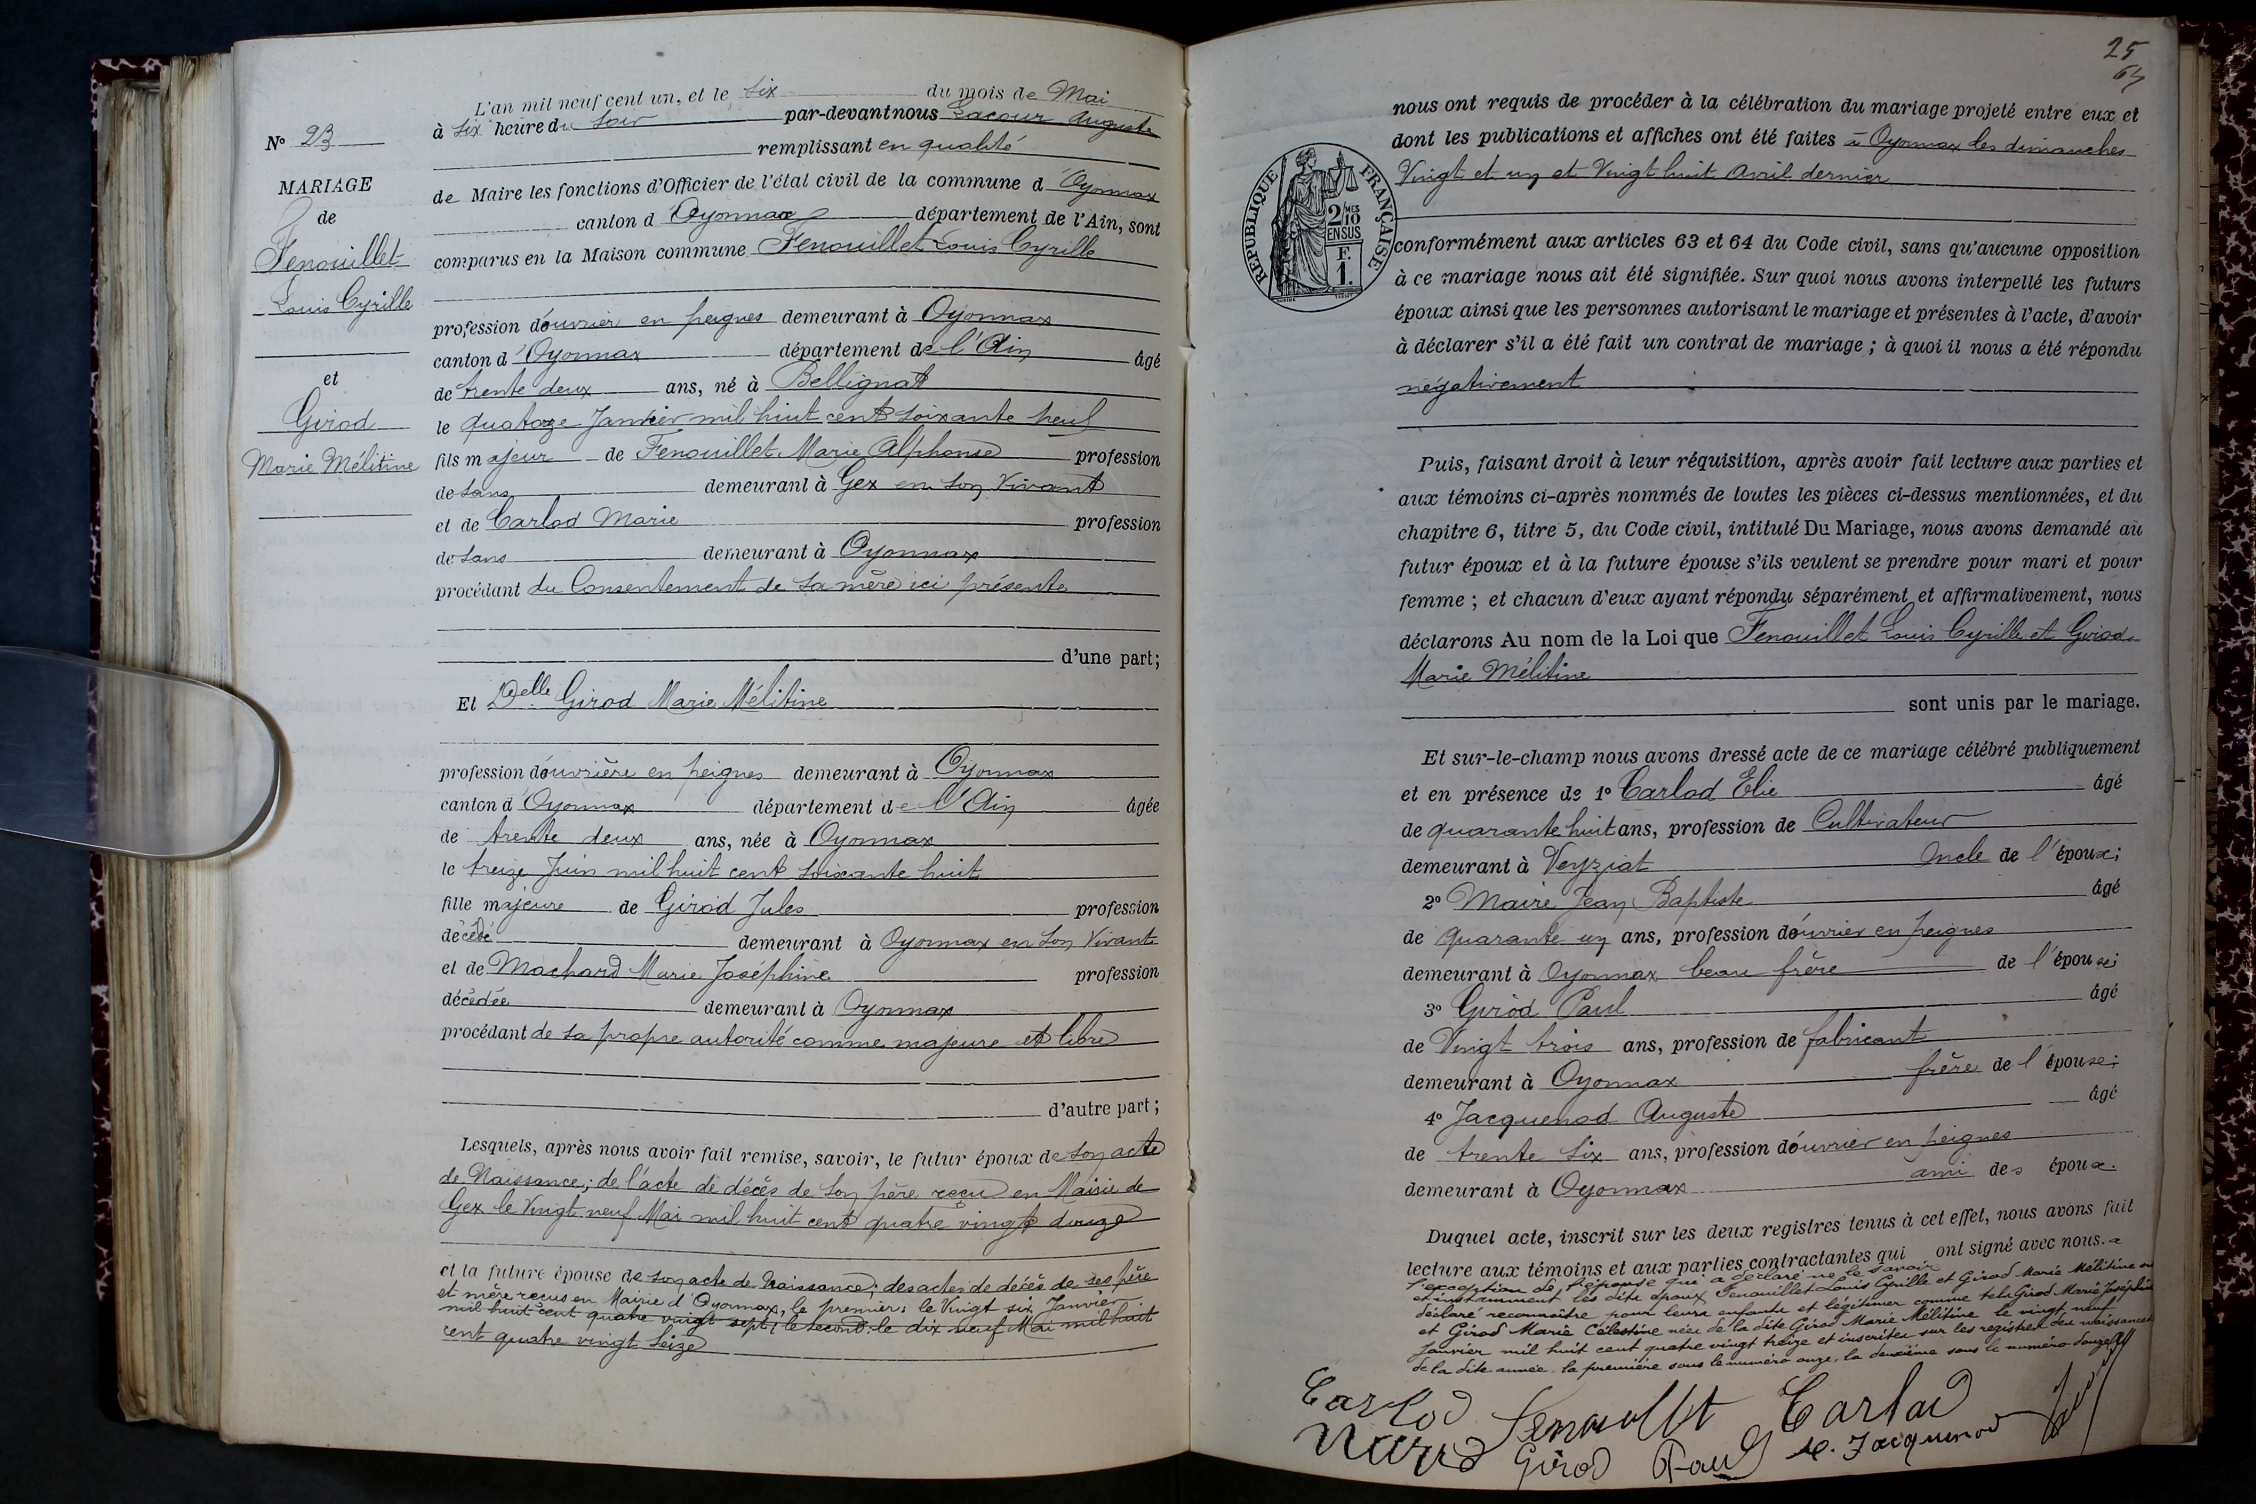 L'an mil neuf cent un, et le six du mois de Mai
à six heure du soir par-devant nous Lacour Auguste
remplissant en qualité
de Maire les fonctions d'Officier de l'état civil de la commune d Oyonnax
canton d Oyonnax département de l'Ain, sont
comparus en la Maison commune Fenouillet Louis Cyrille
profession d'ouvrier en peignes demeurant à Oyonnax
canton d'Oyonnax département de l'Ain âgé
de trente deux ans, né à Bellignat
le quatorze Janvier mil huit cent soixante neuf
fils majeur de Fenouillet Marie Alphonse profession
de sans demeurant à Gex en son vivant
et de Carlod Marie profession
de sans demeurant à Oyonnax
procédant du Consentement de sa mère ici présente
d'une part;
Et Delle Girod Marie Mélitine
profession d'ouvrière en peignes demeurant à Oyonnax
canton d'Oyonnax département de l'Ain âgée
de trente deux ans, née à Oyonnax
le treize Juin mil huit cent soixante huit
fille majeure de Girod Jules profession
décédé demeurant à Oyonnax en son vivant
et de Machard Marie Joséphine profession
décédée demeurant à Oyonnax
procédant de sa propre autorité comme majeure et libre
d'autre part;
Lesquels, après nous avoir fait remise, savoir, le futur époux de son acte
de Naissance; de l'acte de décès de son père reçu en Mairie de
Gex le Vingt neuf Mai mil huit cent quatre vingt douze
et la future épouse de son acte de Naissance; des actes de décès de ses père
et mère reçus en Mairie d'Oyonnax, le premier: le Vingt six Janvier
mil huit cent quatre vingt sept; le second: le dix neuf Mai mil huit
cent quatre vingt seize
N° 23
MARIAGE
de
Fenouillet
Louis Cyrille
et
Girod
Marie Mélitine
25
nous ont requis de procéder à la célébration du mariage projeté entre eux et
dont les publications et affiches ont été faites à Oyonnax les dimanches
Vingt et un et Vingt huit Avril dernier
RÉPUBLIQUE FRANÇAISE
2/10 MES
EN SUS
F.
1.
conformément aux articles 63 et 64 du Code civil, sans qu'aucune opposition
à ce mariage nous ait été signifiée. Sur quoi nous avons interpellé les futurs
époux ainsi que les personnes autorisant le mariage et présentes à l'acte, d'avoir
à déclarer s'il a été fait un contrat de mariage; à quoi il nous a été répondu
négativement
Puis, faisant droit à leur réquisition, après avoir fait lecture aux parties et
aux témoins ci-après nommés de toutes les pièces ci-dessus mentionnées, et du
chapitre 6, titre 5, du Code civil, intitulé Du Mariage, nous avons demandé au
futur époux et à la future épouse s'ils veulent se prendre pour mari et pour
femme; et chacun d'eux ayant répondu séparément et affirmativement, nous
déclarons Au nom de la Loi que Fenouillet Louis Cyrille et Girod
Marie Mélitine
sont unis par le mariage.
Et sur-le-champ nous avons dressé acte de ce mariage célébré publiquement
et en présence de 1° Carlod Elie âgé
de quarante huit ans, profession de Cultivateur
demeurant à Veyziat oncle de l'époux;
2° Maire Jean Baptiste âgé
de quarante un ans, profession d'ouvrier en peignes
demeurant à Oyonnax beau frère de l'épouse;
3° Girod Paul âgé
de Vingt trois ans, profession de fabricant
demeurant à Oyonnax frère de l'épouse;
4° Jacquenod Auguste âgé
de trente six ans, profession d'ouvrier en peignes
demeurant à Oyonnax ami des époux.
Duquel acte, inscrit sur les deux registres tenus à cet effet, nous avons fait
lecture aux témoins et aux parties contractantes qui ont signé avec nous. a
l'exception de l'épouse qui a déclaré ne le savoir
et instamment les dits époux Fenouillet Louis Cyrille et Girod Marie Mélitine ont
déclaré reconnaître pour leurs enfants et légitimer comme tels Girod Marie Joséphine
et Girod Marie Célestine nées de la dite Girod Marie Mélitine le vingt neuf
Janvier mil huit cent quatre vingt treize et inscrites sur les registres des naissances
de la dite année la première sous le numéro onze, la deuxième sous le numéro douze
Carlod Fenouillet Carlod
Maire Girod Paul A. Jacquenod